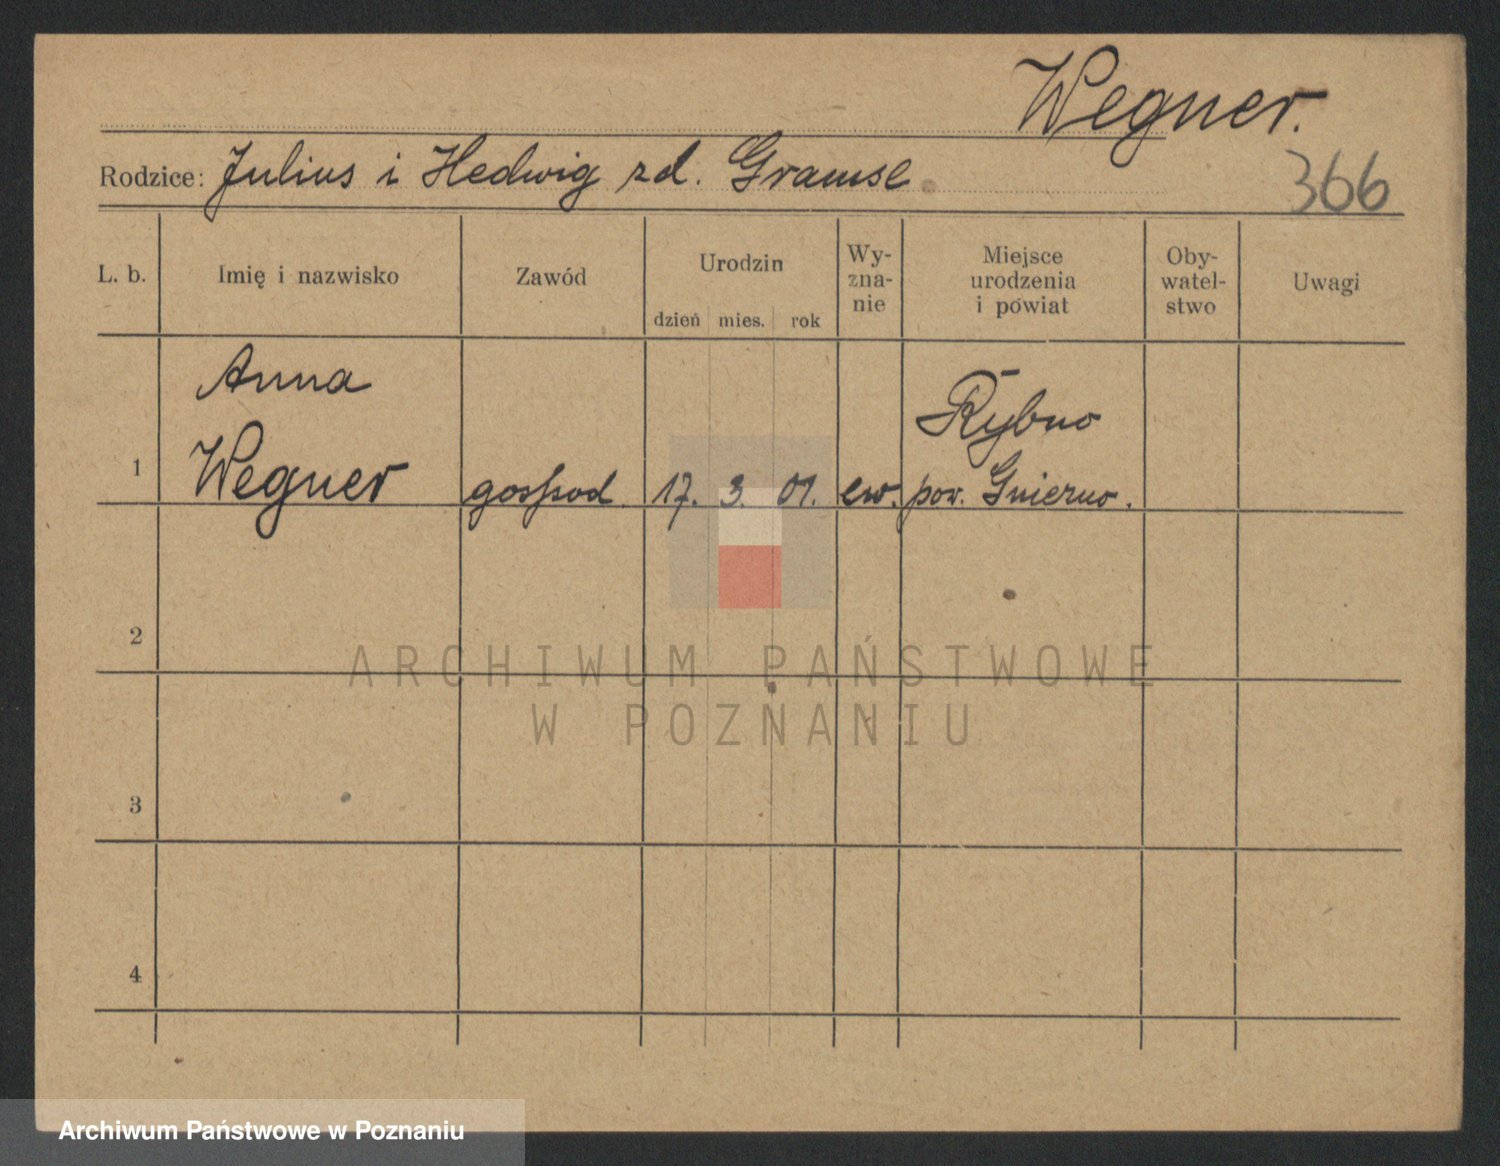 Wegner.
Rodzice: Julius i Hedwig zd. Gramse
366
L. b. Imię i nazwisko Zawód Urodzin dzień mies. rok Wy-zna-nie Miejsce urodzenia i powiat Oby-watel-stwo Uwagi
Anna
Wegner
1 gospod. 17. 3. 01. ew. Rybno
pow. Gniezno.
2
ARCHIWUM PAŃSTWOWE
W POZNANIU
3
4
Archiwum Państwowe w Poznaniu